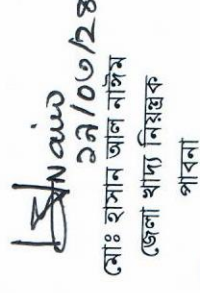 Naim
১৯/০৩/২৪
মোঃ হাসান আল নাঈম
জেলা খাদ্য নিয়ন্ত্রক
পাবনা